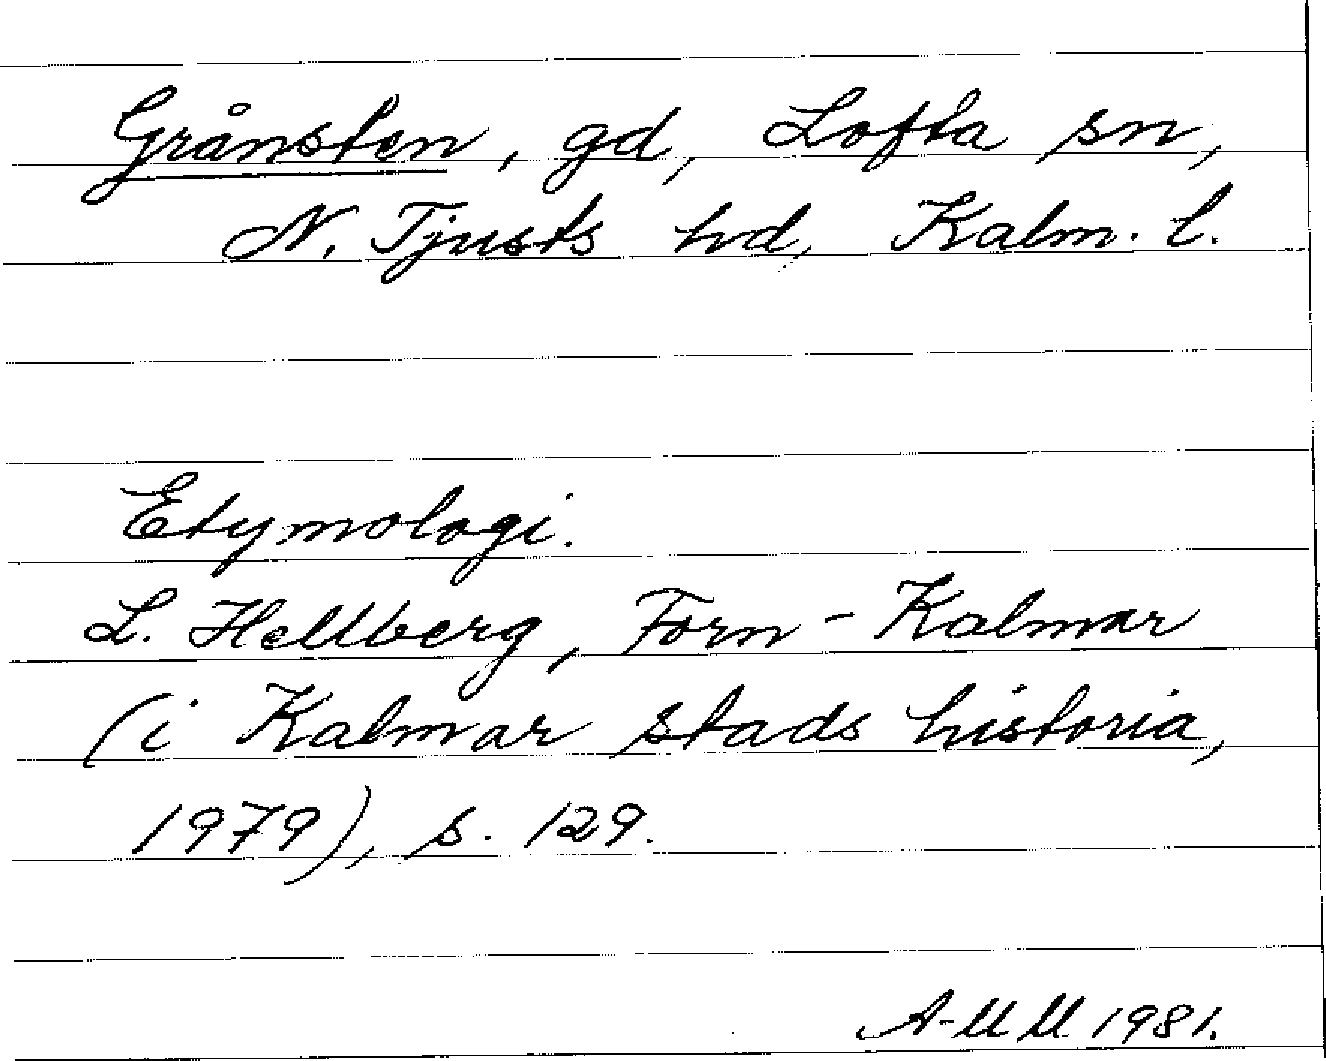 Grånsten, gd, Lofta sn,
N. Tjusts hd, Kalm. l.
Etymologi.
L. Hellberg, Forn-Kalmar
(i Kalmar stads historia,
1979), s. 129.
A-MM 1981.